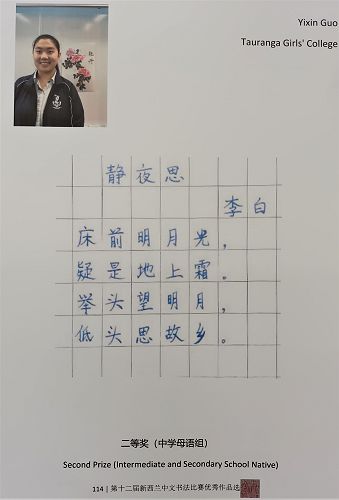 Yixin Guo
Tauranga Girls' College
静夜思
李白
床前明月光，
疑是地上霜。
举头望明月，
低头思故乡。
二等奖（中学母语组）
Second Prize (Intermediate and Secondary School Native)
114 | 第十二届新西兰中文书法比赛优秀作品选